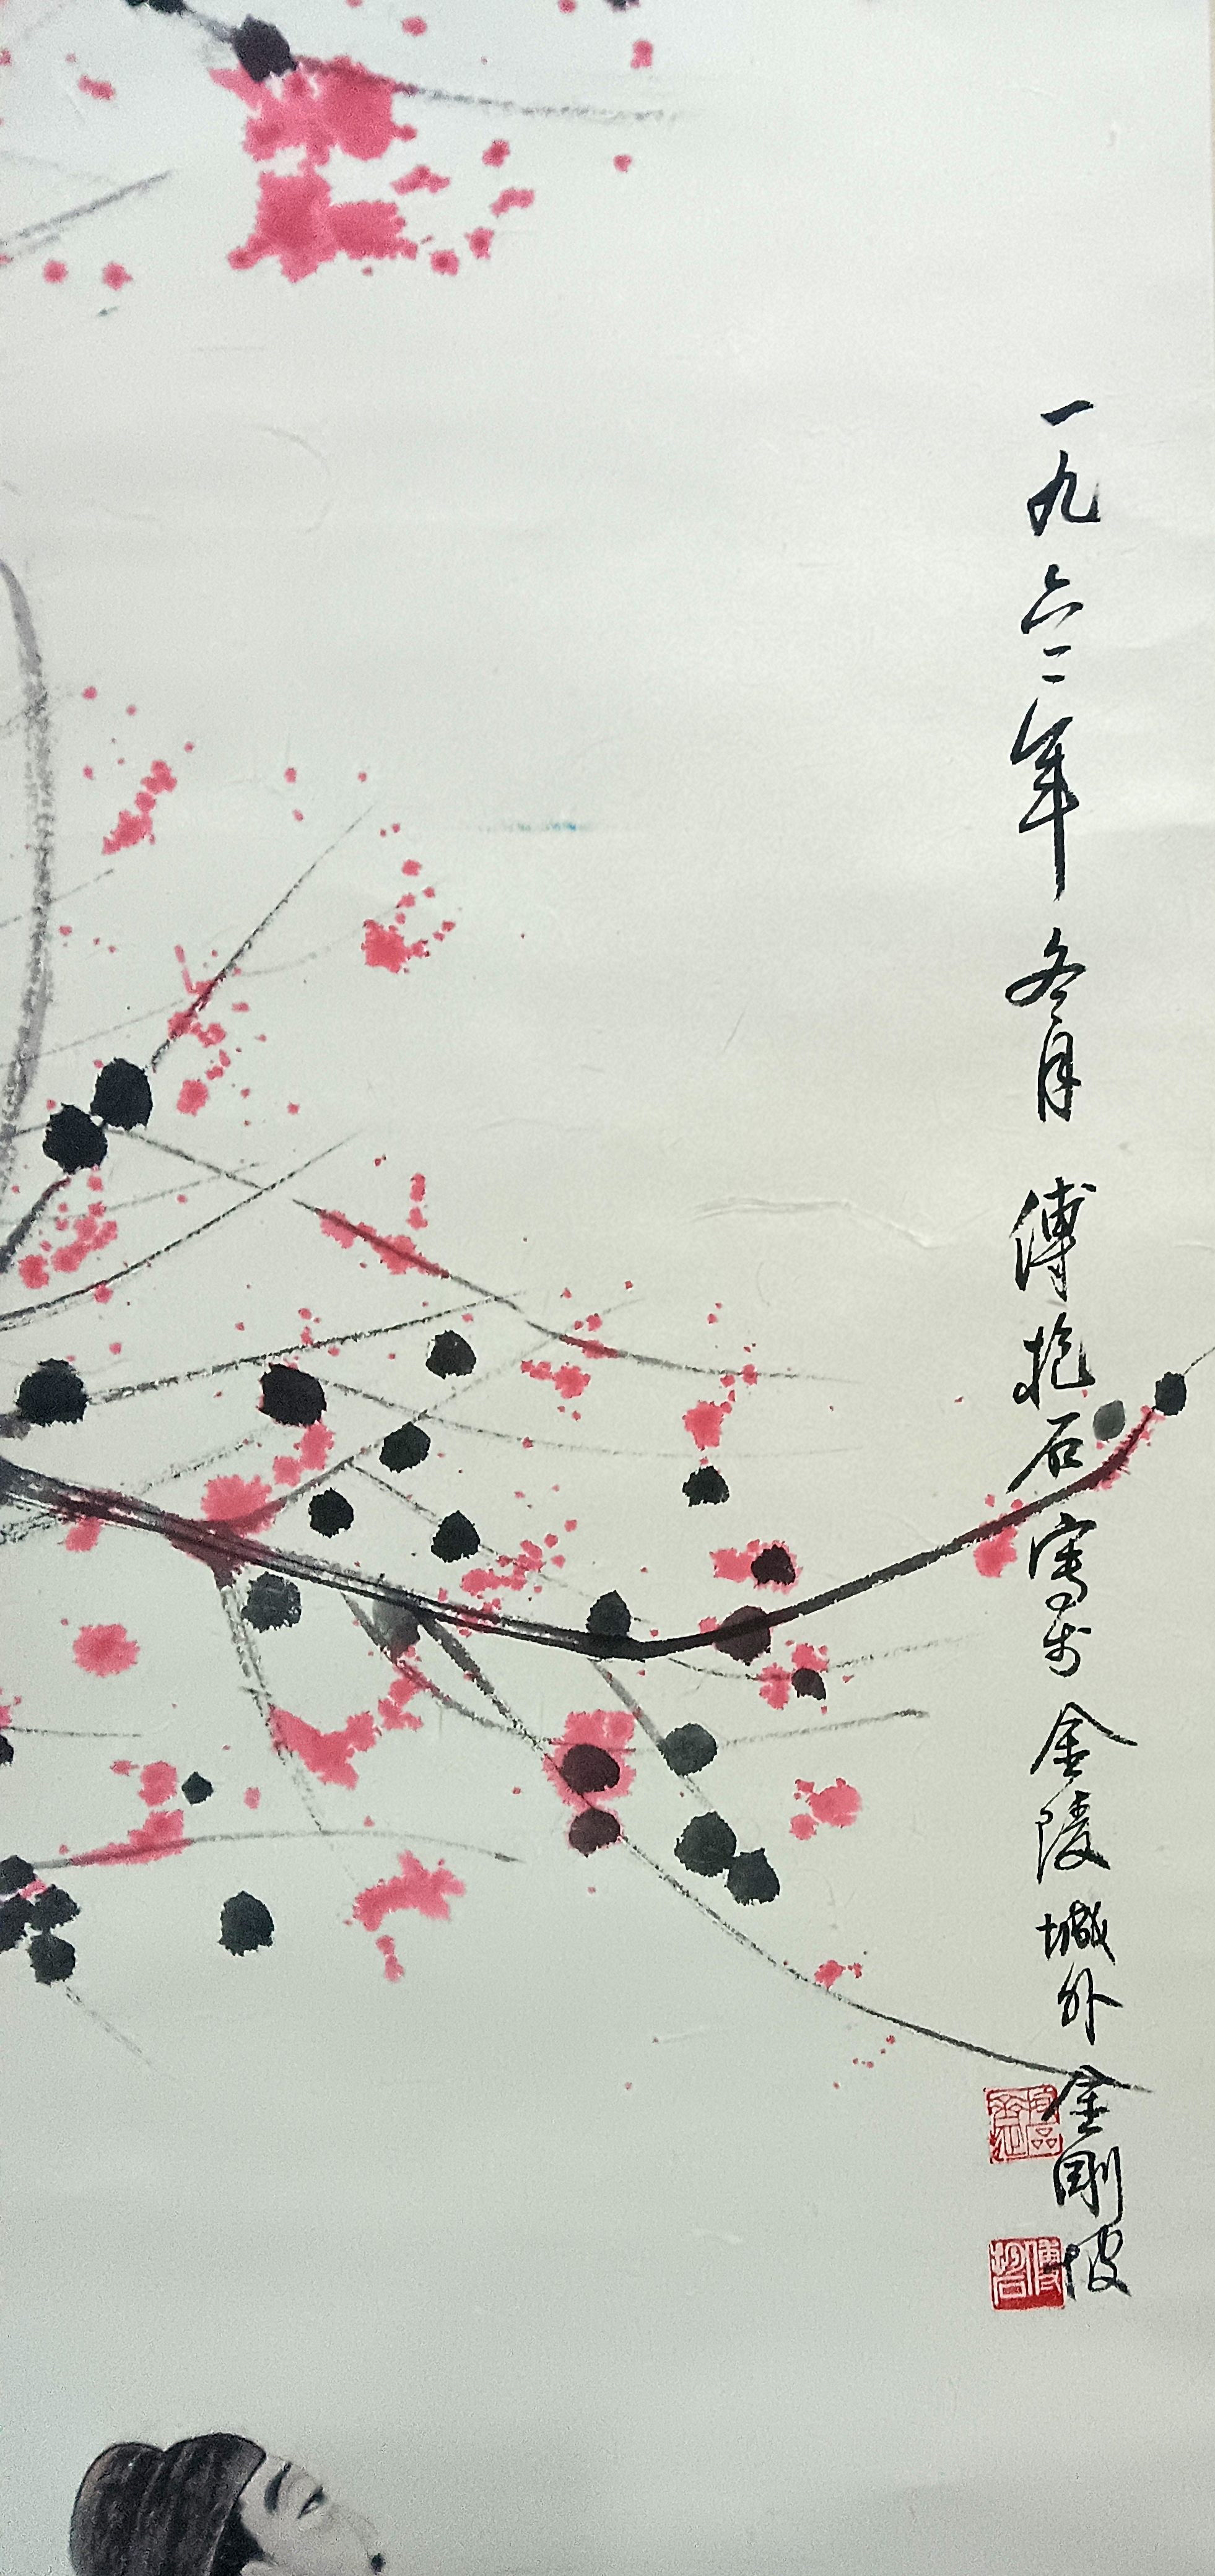 一九六二年冬月傅抱石寫於金陵城外金剛坡
傅抱石